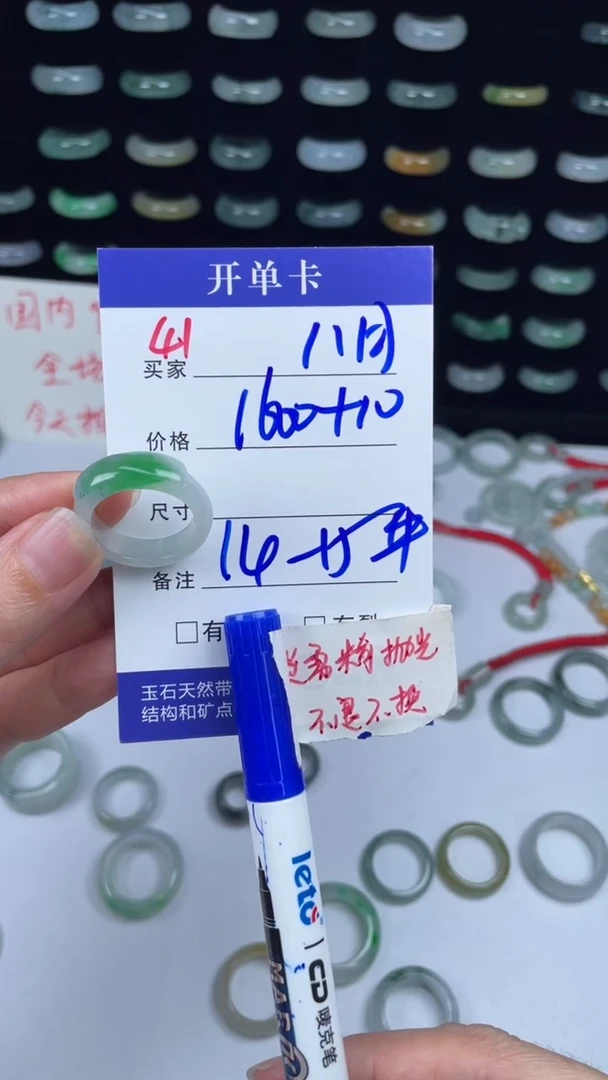 国内
全场
今天
开单卡
41
买家 八月
价格 1600+10
尺寸
备注 14
有
有裂
玉石天然带
结构和矿点
送看精抛光
不退不换
leto
CD 唛克笔
MAR